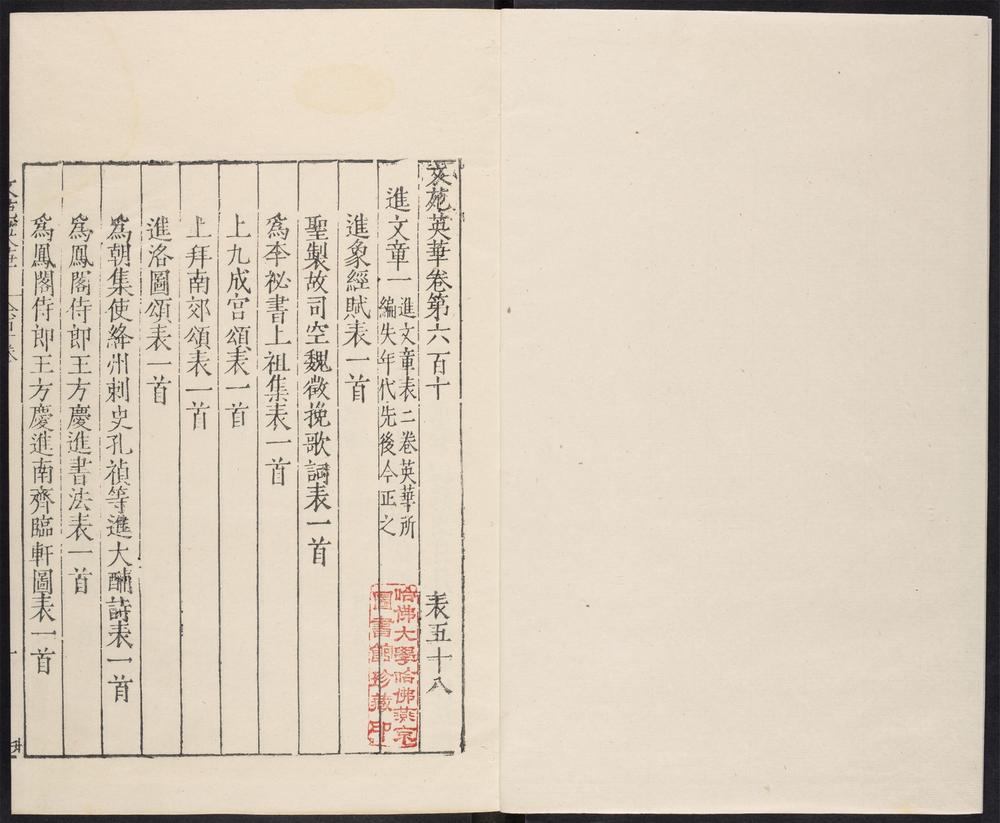 文苑英華卷第六百十　表五十八
進文章一
進文章表二卷英華所
編失年代先後今正之
進象經賦表一首
聖製故司空魏徵挽歌詞表一首
爲李祕書上祖集表一首
上九成宮頌表一首
上拜南郊頌表一首
進洛圖頌表一首
爲朝集使絳州刺史孔禎等進大酺詩表一首
爲鳳閣侍郎王方慶進書法表一首
爲鳳閣侍郎王方慶進南齊臨軒圖表一首
哈佛大學哈佛燕京
圖書館珍藏印